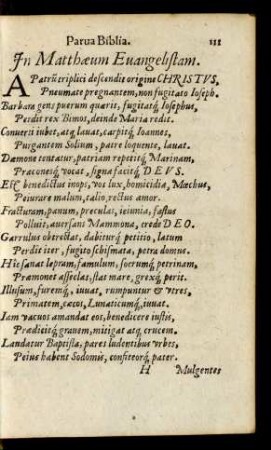 Parua Biblia. 111
In Matthæum Euangelistam.
A Patrũ triplici descendit origine CHRISTVS,
Pneumate pregnantem, non fugitato Ioseph.
Barbara gens puerum quærit, fugitatq́; Iosephus,
Perdit rex Bimos, deinde Maria redit.
Conuerti iubet, atq́; lauat, carpitq́; Ioannes,
Purgantem Solium, patre loquente, lauat.
Dæmone tentatur, patriam repetitq́; Marinam,
Præconesq́; vocat, signa facitq́; DEVS.
Est benedictus inops, vos lux, homicidia, Mœchus,
Peiurare malum, talio, rectus amor.
Fracturam, panum, preculas, ieiunia, fastus
Polluit, auersans Mammona, crede DEO.
Garrulus obtrectat, dabiturq́; petitio, latum
Perdit iter, fugito schismata, petra domus.
Hic sanat lepram, famulum, socrumq́; petrinam,
Præmonet asseclas, stat mare, grexq́; perit.
Illusum, furemq́;, iuuat, rumpuntur & vtres,
Primatem, cæcos, Lunaticumq́;, iuuat.
Iam vacuos amandat eos, benedicere iustis,
Prædicitq́; grauem, mitigat atq́; crucem.
Laudatur Baptista, pares ludentibus vrbes,
Peius habent Sodomis, confiteorq́; pater.
H Mulgentes